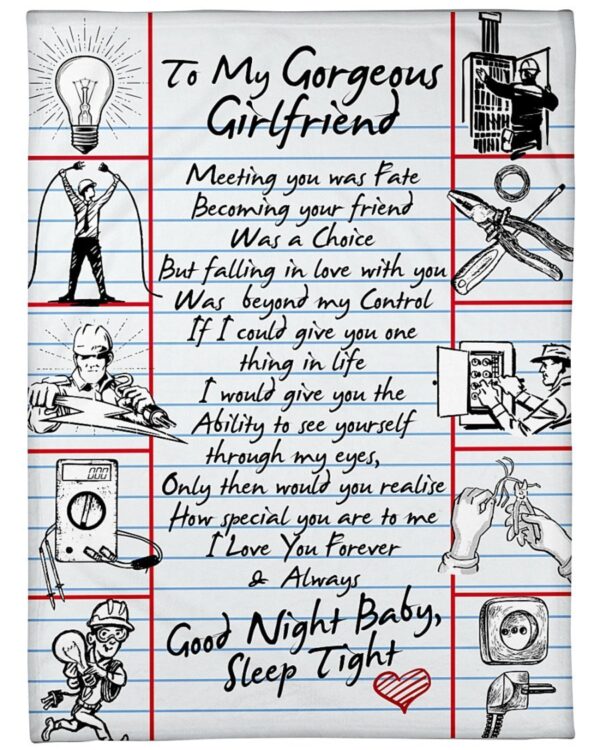 To My Gorgeous
Girlfriend
Meeting you was Fate
Becoming your friend
Was a Choice
But falling in love with you
Was beyond my Control
If I could give you one
thing in life
I would give you the
Ability to see yourself
through my eyes,
Only then would you realise
How special you are to me
I Love You Forever
& Always
Good Night Baby,
Sleep Tight
000